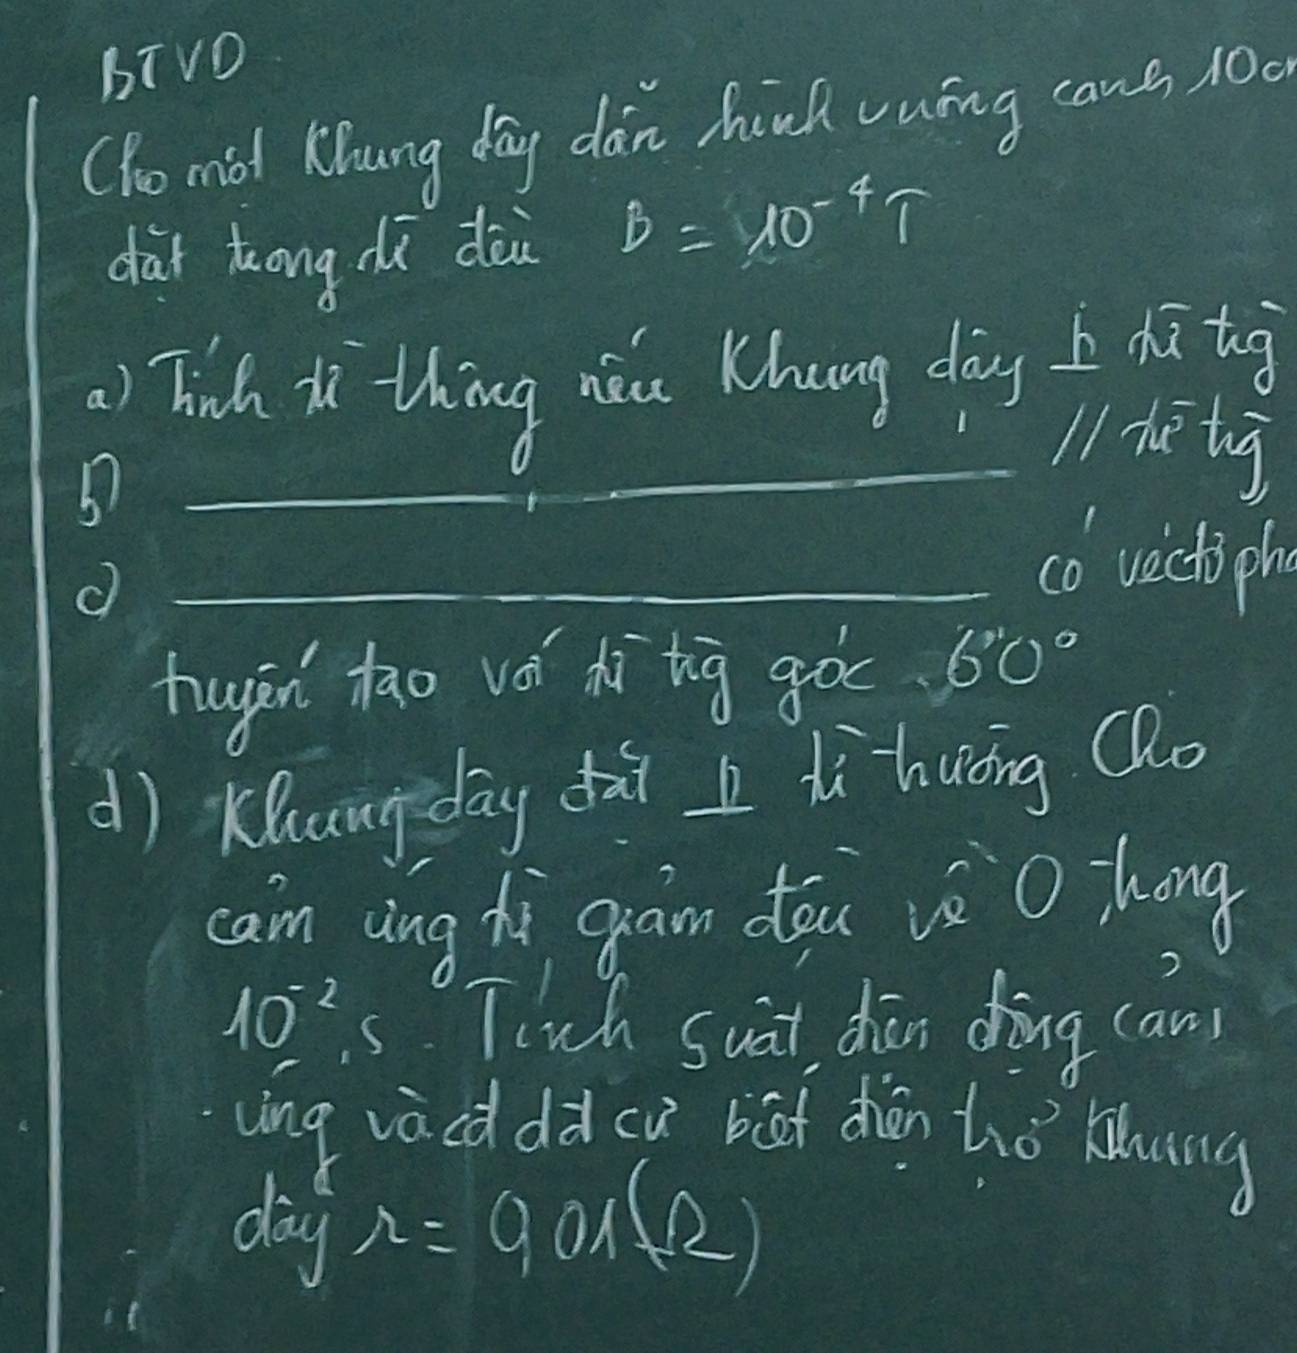 BTVD
Cho một khung dây dẫn hình vuông cạnh 10c
đặt trong từ đều B = 10⁻⁴T
a) Tính từ thông nếu khung dây ⊥ từ trg
b) ———————— // từ trg
c) ———————— có véctơ phá
tuyến tạo với từ trg góc 60°
d) Khung dây đặt ⊥ từ trường. Cho
cảm ứng từ giảm đều về 0 trong
10⁻² s. Tính suất điện động cảm
ứng và cđ dđ cư biết điện trở khung
dây r = 0,01(Ω)